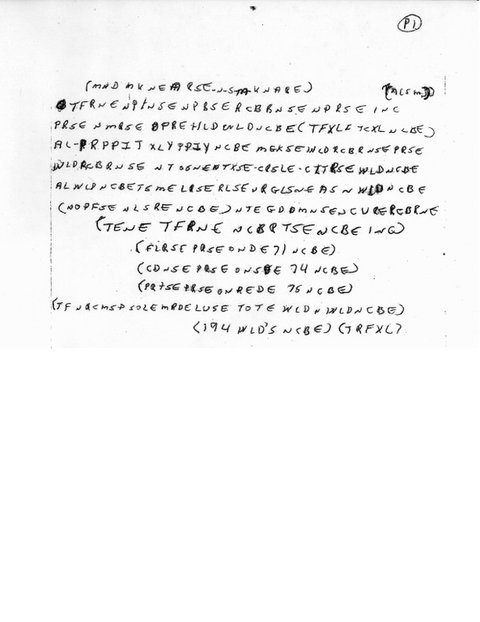 P1
(MND MKNEARSE-N-S-M-KNARE) (ACSM)
TFRNENPINSENPBSERCBRNSENPRSEINC
PRSENMRSEOPREHLDWLDNCBE(TFXLFTCXLNCBE)
AL-PRPPITXLYPPIYNCBEMGKSEWLDRCBRNSEPRSE
WLDRCBRNSENTOSNENTXSE-CRSLE-CITRSEWLDNCBE
ALWLDNCBETSMELRSERLSENRGLSNEASNWLDNCBE
(NOPFSENLSRENCBE)NTEGDDMNSENCURERCBRNE
(TENETFRNENCBRTSENCBEING)
(FLRSEPRSEONDE71NCBE)
(CDNSEPRSEONSDE74NCBE)
(PRTSEPRSEONREDE75NCBE)
(TFNRCMSPSOLEMRDELUSETOTEWLDNWLDNCBE)
(194WLD'SNCBE)(TRFXL)